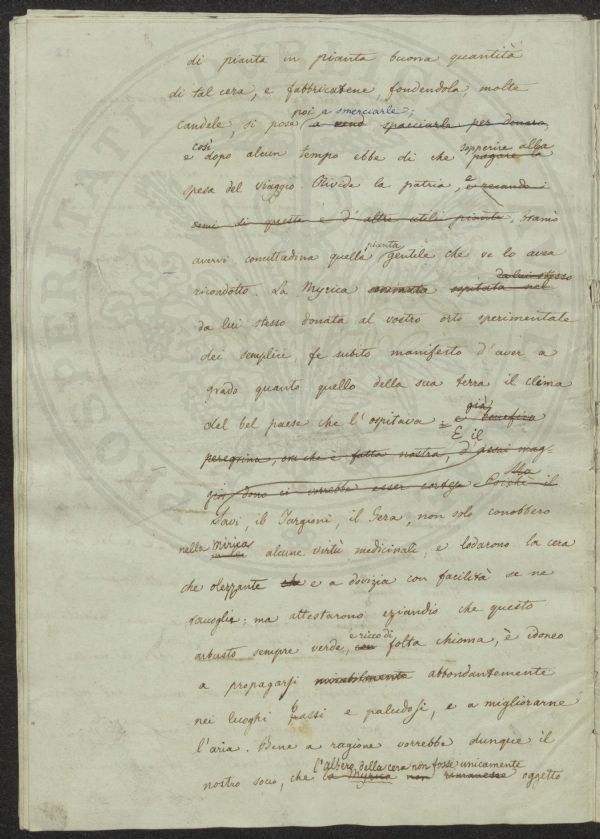 di pianta in pianta buona quantità
di tal cera, e fabbricatene, fondendola, molte
poi a smerciarle;
candele, si pose a spacciarle per denaro,
così sopperire alla
e dopo alcun tempo ebbe di che pagare la
spesa del viaggio. Rivide la patria, e recando i
semi di questa e d'altre utili piante, bramò
pianta
avervi concittadina quella gentile che ve lo avea
da lui stesso
ricondotto. La Myrica ospitata nel
da lui stesso donata al vostro orto sperimentale
dei semplici, fe subito manifesto d'aver a
grado quanto quello della sua terra il clima
già
del bel paese che l'ospitava = e benefica
E il
peregrina, ora che è fatta nostra, d'assai mag-
gior dono ci vorrebbe esser cortese. Poichè il
Savi, il Targioni, il Gera, non solo conobbero
Mirica
nella alcune virtù medicinali, e lodarono la cera
che olezzante e a dovizia con facilità se ne
raccoglie: ma attestarono eziandio che questo
e ricco di
arbusto sempre verde, folta chioma, è idoneo
a propagarsi mirabilmente abbondantemente
nei luoghi bassi e paludosi, e a migliorarne
l'aria. Bene a ragione vorrebbe dunque il
l'albero della cera non fosse unicamente
nostro socio, che la Myrica non rimanesse oggetto